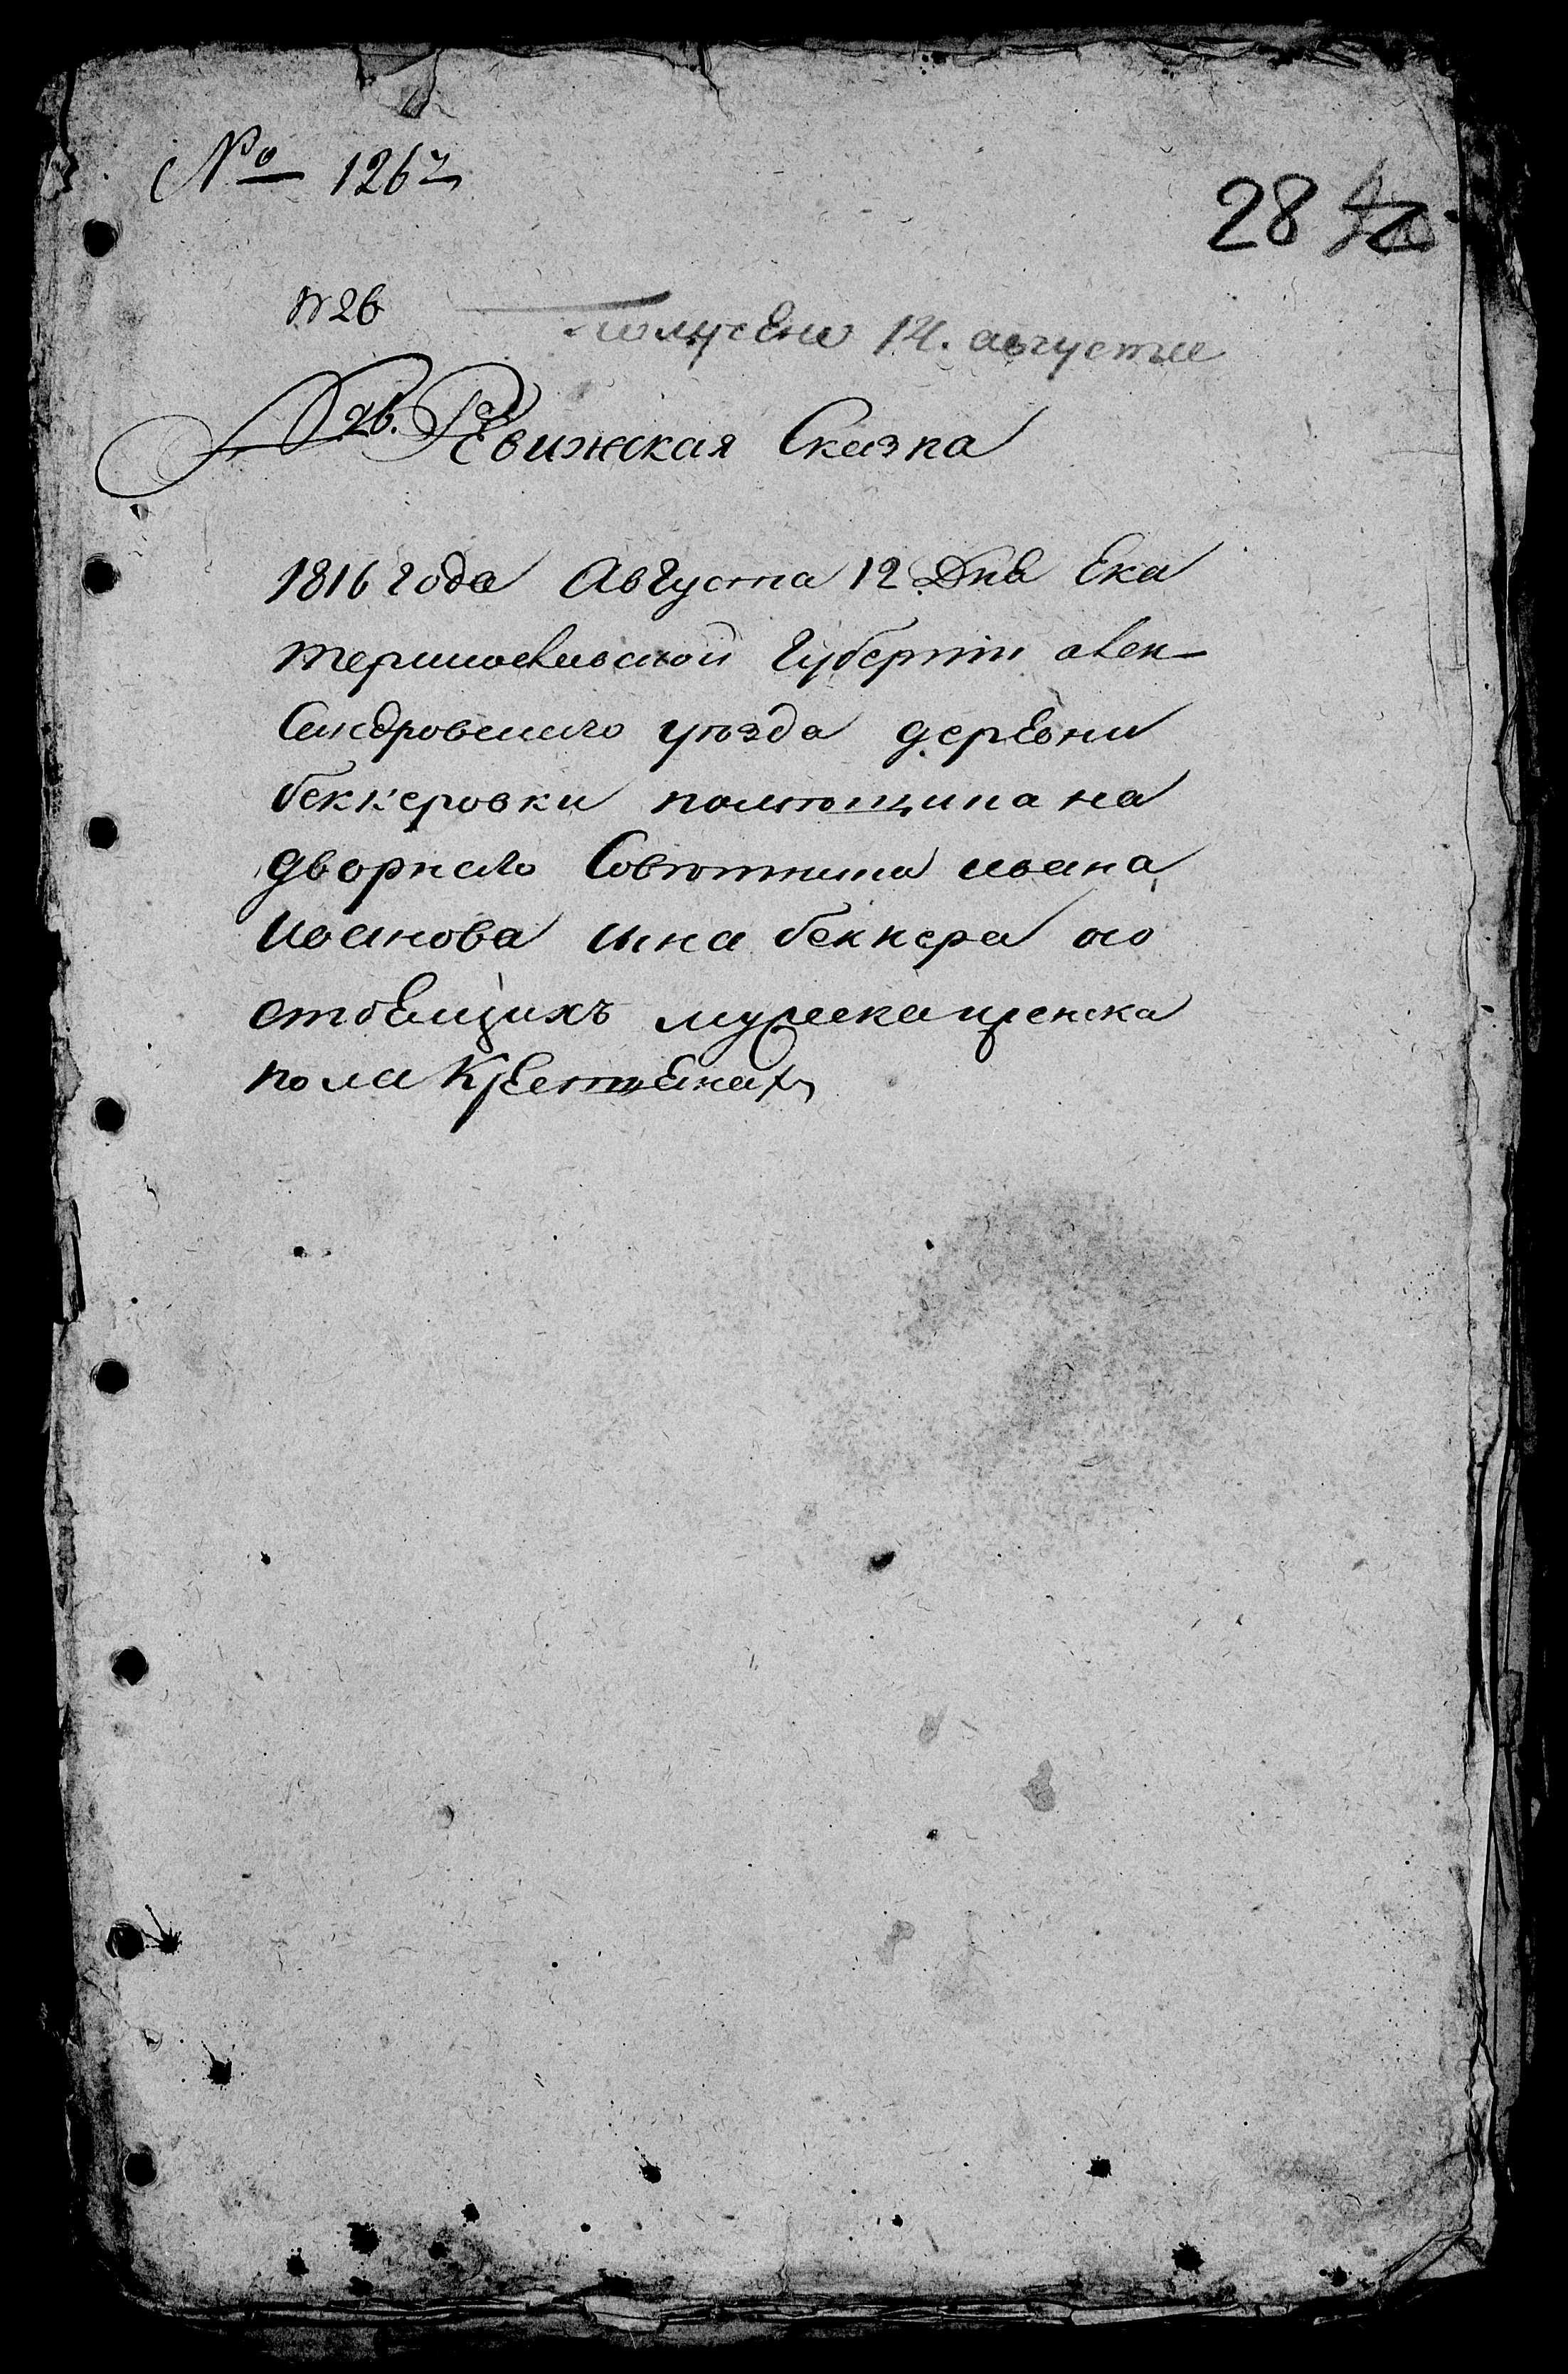 № 1267
28
№ 26
Получено 14. августа
26. Ревижская Сказка
1816 года Августа 12 Дня Ека
теринославской Губернии алек-
Сандровскаго уезда деревни
беккеровки помющика на
дворнаго Совютника ивана
иванова сина беккера осо
стоящихъ мужска и женска
пола Крестянах